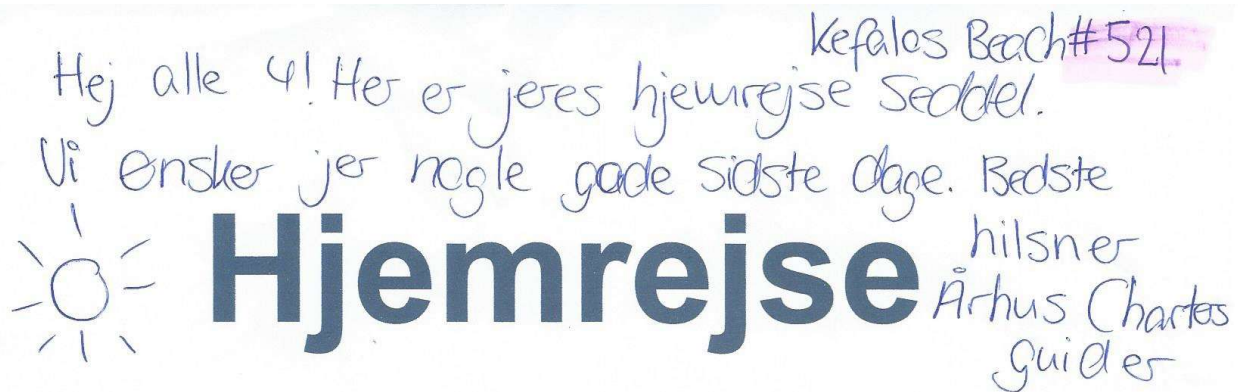 Kefalos Beach #521
Hej alle 4! Her er jeres hjemrejse Seddel.
Vi ønsker jer nogle gode sidste dage. Bedste
hilsner
Hjemrejse
Århus Charters
guider